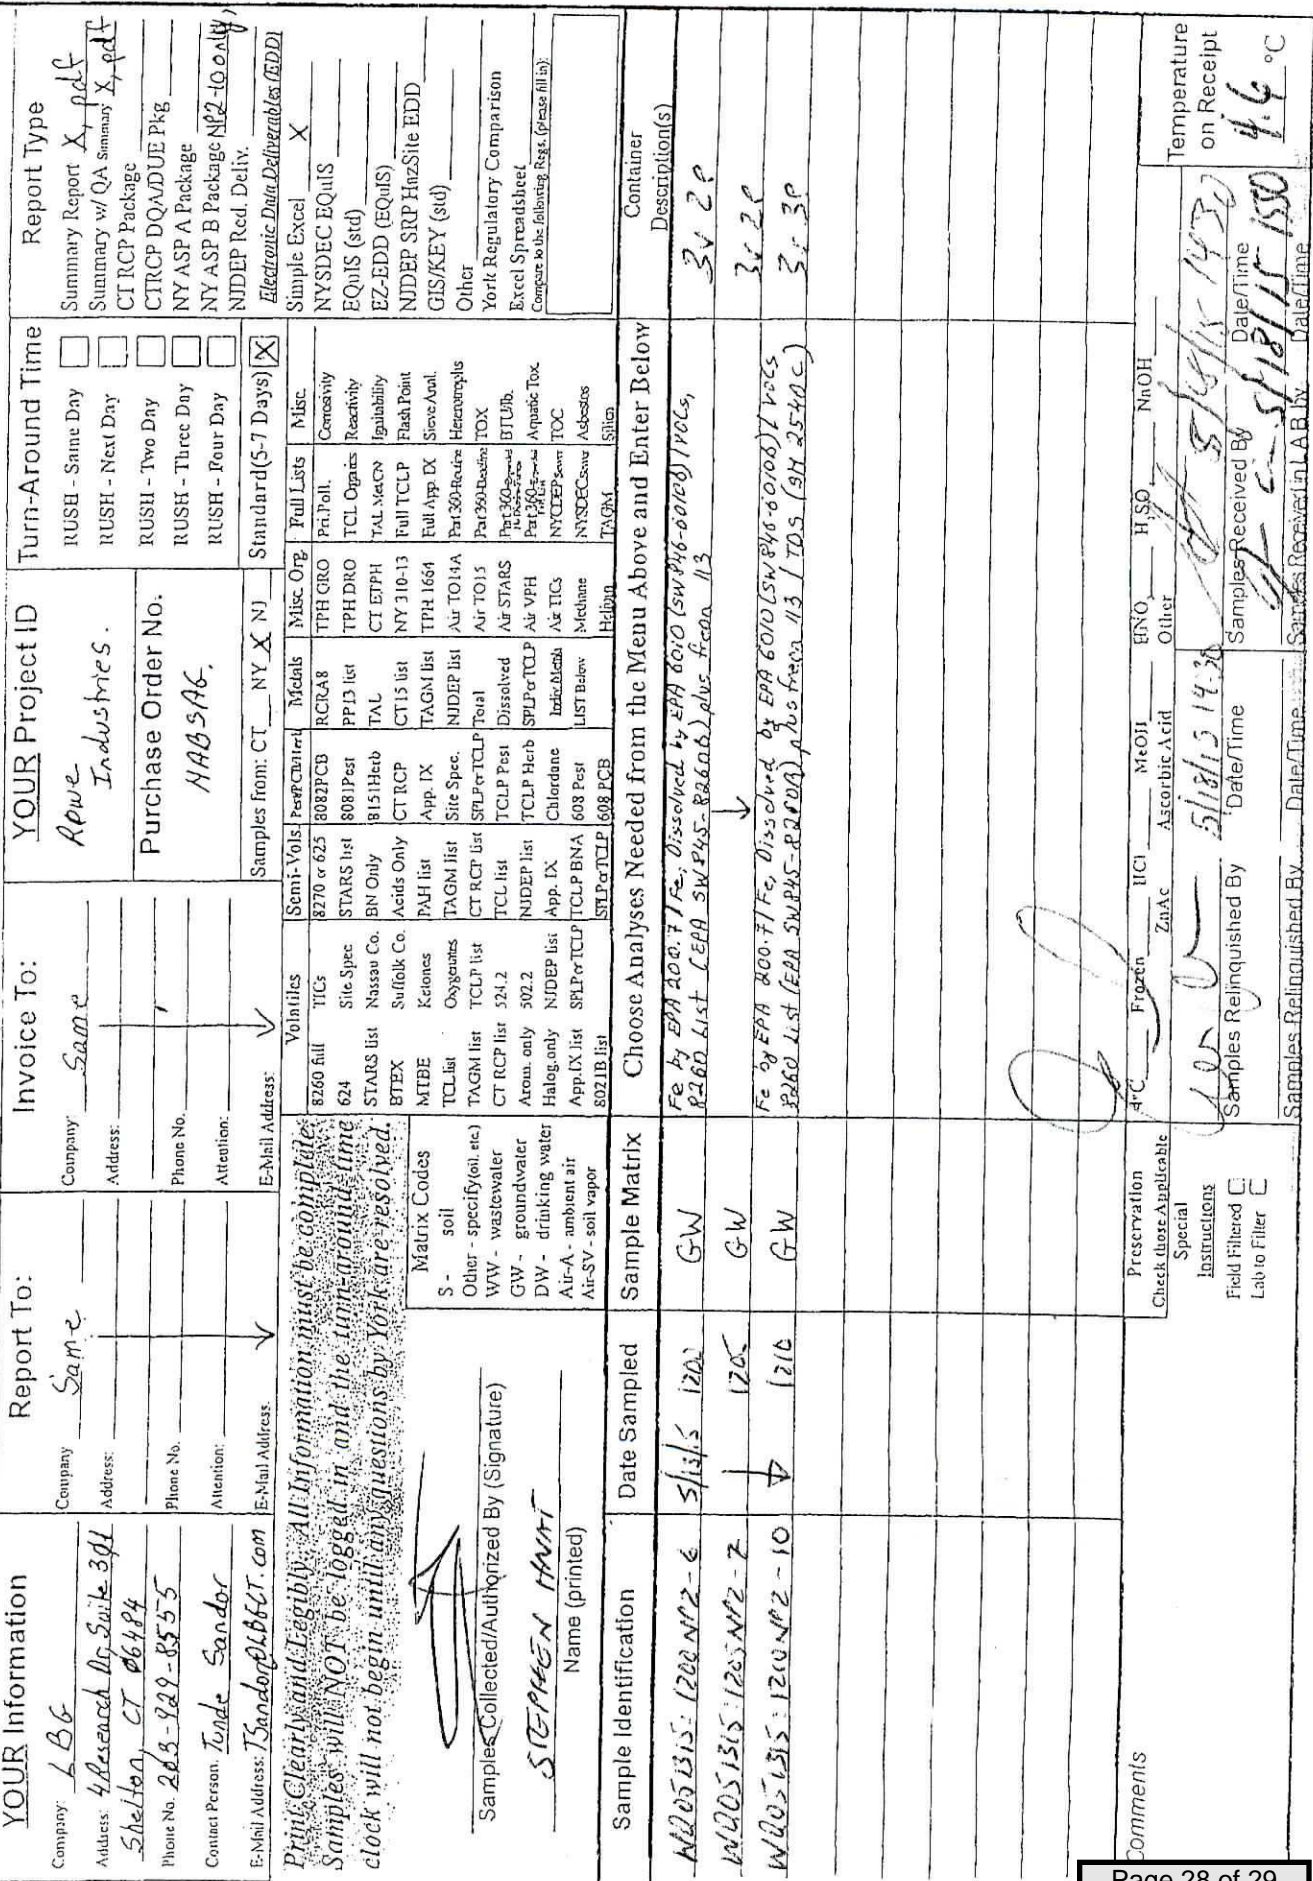 YOUR Information
Company: LBG
Address: 4 Research Dr, Suite 301
Shelton, CT 06484
Phone No. 203-929-8555
Contact Person: Tunde Sandor
E-Mail Address: TSandor@LBGCT.com
Report To:
Company Same
Address:
Phone No.
Attention:
E-Mail Address:
Invoice To:
Company: Same
Address:
Phone No.
Attention:
E-Mail Address:
YOUR Project ID
Rowe
Industries.
Purchase Order No.
NABSAG.
Samples from: CT NY X NJ
Turn-Around Time
RUSH - Same Day
RUSH - Next Day
RUSH - Two Day
RUSH - Three Day
RUSH - Four Day
Standard(5-7 Days) X
Report Type
Summary Report X, pdf
Summary w/ QA Summary X, pdf
CT RCP Package
CTRCP DQA/DUE Pkg
NY ASP A Package
NY ASP B Package NP2-10 only
NJDEP Red. Deliv.
Electronic Data Deliverables (EDD)
Simple Excel X
NYSDEC EQuIS
EQuIS (std)
EZ-EDD (EQuIS)
NJDEP SRP HazSite EDD
GIS/KEY (std)
Other
York Regulatory Comparison
Excel Spreadsheet
Compare to the following Regs. (please fill in):
Print Clearly and Legibly. All Information must be complete.
Samples will NOT be logged in and the turn-around time
clock will not begin until any questions by York are resolved.
Samples Collected/Authorized By (Signature)
STEPHEN HNAT
Name (printed)
Matrix Codes
S - soil
Other - specify(oil, etc.)
WW - wastewater
GW - groundwater
DW - drinking water
Air-A - ambient air
Air-SV - soil vapor
Volatiles
8260 full TICs
624 Site Spec
STARS list Nassau Co.
BTEX Suffolk Co.
MTBE Ketones
TCL list Oxygenates
TAGM list TCLP list
CT RCP list 524.2
Arom. only 502.2
Halog.only NJDEP list
App.IX list SPLPorTCLP
8021B list
Semi-Vols.
8270 or 625
STARS list
BN Only
Acids Only
PAH list
TAGM list
CT RCP list
TCL list
NJDEP list
App. IX
TCLP BNA
SPLPorTCLP
Pest/PCB/Herb
8082PCB
8081Pest
8151Herb
CT RCP
App. IX
Site Spec.
SPLPorTCLP
TCLP Pest
TCLP Herb
Chlordane
608 Pest
608 PCB
Metals
RCRA8
PP13 list
TAL
CT15 list
TAGM list
NJDEP list
Total
Dissolved
SPLPorTCLP
Indiv.Metals
LIST Below
Misc. Org.
TPH GRO
TPH DRO
CT ETPH
NY 310-13
TPH 1664
Air TO14A
Air TO15
Air STARS
Air VPH
Air TICs
Methane
Helium
Full Lists
Pri.Poll.
TCL Organics
TAL MetCN
Full TCLP
Full App. IX
Part 360-Routine
Part 360-Baseline
NYCDEP Sewer
NYSDEC Sewer
TAGM
Misc.
Corrosivity
Reactivity
Ignitability
Flash Point
Sieve Anal.
Heterotrophs
TOX
BTU/lb.
Aquatic Tox.
TOC
Asbestos
Silica
Sample Identification Date Sampled Sample Matrix Choose Analyses Needed from the Menu Above and Enter Below Container Description(s)
WQ051315:1200NP2-6 5/13/15 1200 GW Fe by EPA 200.7 / Fe, Dissolved by EPA 6010 (SW846-6010B) / VOCs, 3v 2P
8260 List (EPA SW845-8260B) plus freon 113
WQ051315:1205NP2-7 1205 GW 3v 2P
WQ051315:1210NP2-10 1210 GW Fe by EPA 200.7 / Fe, Dissolved by EPA 6010 (SW846-6010B) / VOCs 3v 3P
8260 List (EPA SW845-8260B) plus freon 113 / TDS (SM 2540C)
Comments
Preservation
Check those Applicable
4°C Frozen HCl MeOH HNO3 H2SO4 NaOH
ZnAc Ascorbic Acid Other
Special
Instructions
Field Filtered
Lab to Filter
5/18/15 14:30
Samples Relinquished By Date/Time
5/18/15 1430
Samples Received By Date/Time
Samples Relinquished By Date/Time
5/18/15 1550
Samples Received in LAB by Date/Time
Temperature
on Receipt
4.6 °C
Page 28 of 29